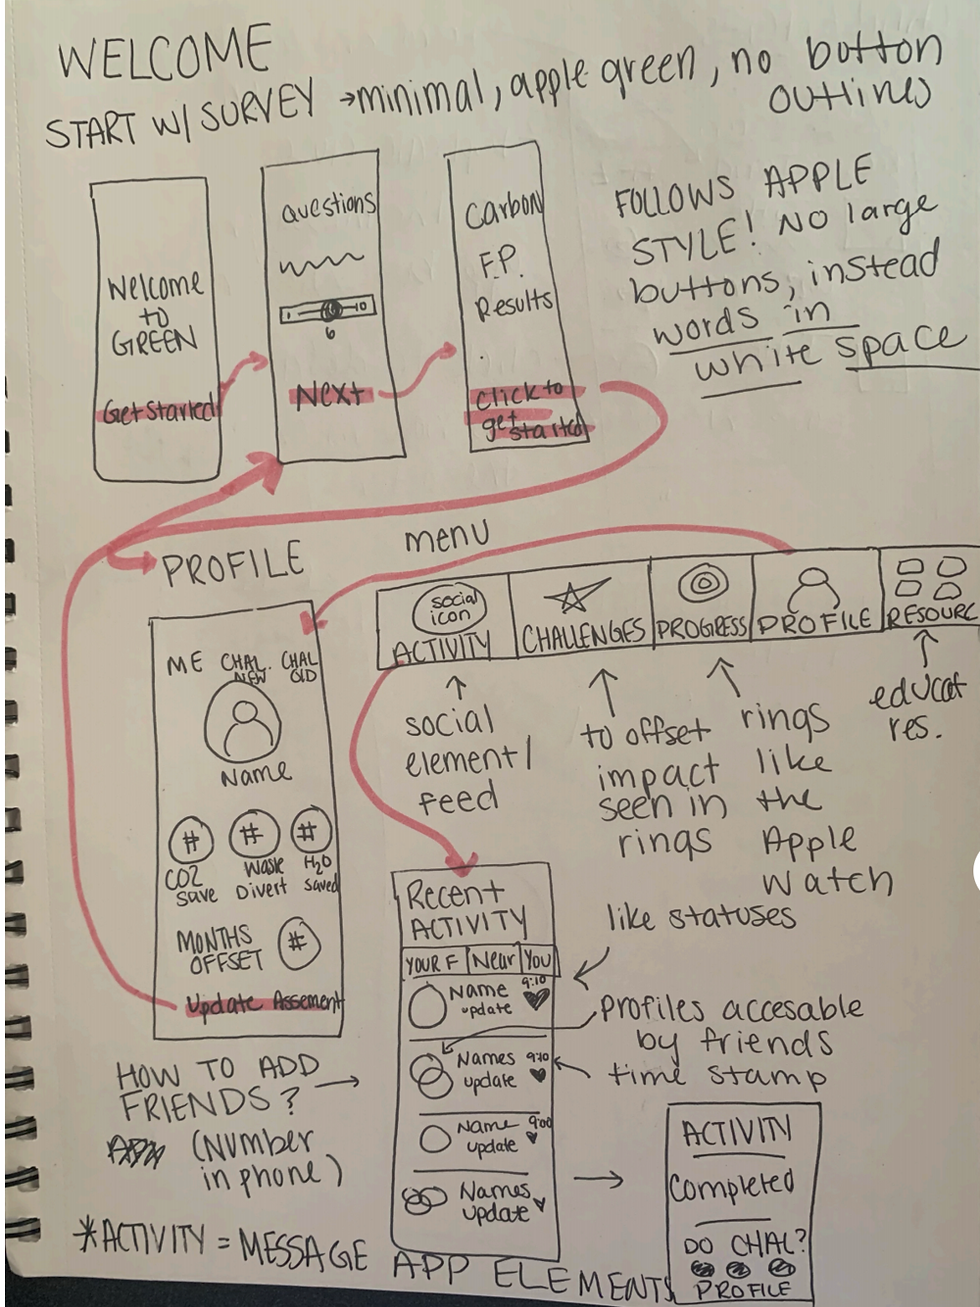 WELCOME
START W/ SURVEY → minimal, apple green, no button
outlines
Welcome
to
GREEN
Get Started
questions
1
10
6
Next
Carbon
F.P.
Results
click to
get started
FOLLOWS APPLE
STYLE! NO large
buttons, instead
words in
white space
PROFILE
menu
social
icon
ACTIVITY
CHALLENGES
PROGRESS
PROFILE
RESOURC
social
element/
feed
to offset
impact
seen in
rings
rings
like
the
Apple
Watch
educat
res.
ME
CHAL.
NEW
CHAL
OLD
Name
# # #
CO2
save
Waste
Divert
H2O
saved
MONTHS
OFFSET #
Update Assement
HOW TO ADD
FRIENDS?
(Number
in phone)
Recent
ACTIVITY
YOUR F Near You
Name 9:10
update
Names 9:10
update
Name 9:00
update
Names
update
like statuses
Profiles accesable
by friends
time stamp
ACTIVITY
Completed
DO CHAL?
PROFILE
*ACTIVITY = MESSAGE APP ELEMENTS